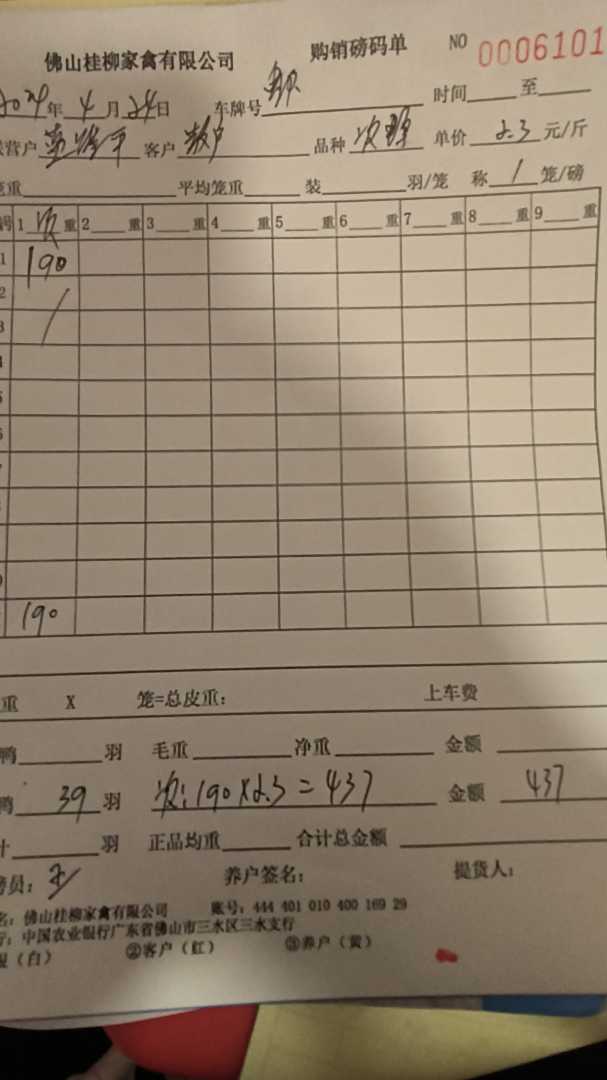 佛山桂柳家禽有限公司 购销磅码单 NO 0006101
2024年4月24日 车牌号 时间 至
营户 客户 散户 品种 次鸭 单价 2.3 元/斤
重 平均笼重 装 羽/笼 称 1 笼/磅
号 1 次 重 2 重 3 重 4 重 5 重 6 重 7 重 8 重 9 重
1 190
2
3
190
重 X 笼=总皮重: 上车费
鸭 羽 毛重 净重 金额
鸭 39 羽 次: 190×2.3=437 金额 437
计 羽 正品均重 合计总金额
员: 养户签名: 提货人:
名: 佛山桂柳家禽有限公司 账号: 444 401 010 400 169 29
行: 中国农业银行广东省佛山市三水区三水支行
(白) ②客户(红) ③养户(黄)